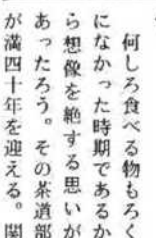 何しろ食べる物もろく
になかった時期であるか
ら想像を絶する思いが
あったろう。その茶道部
が満四十年を迎える。関